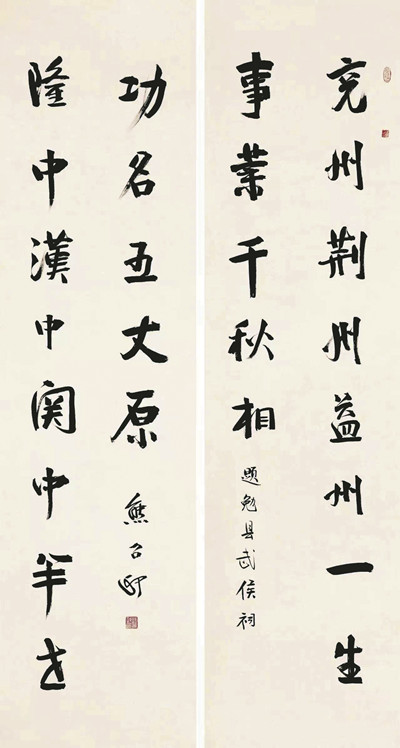 兖州荆州益州一生
事業千秋相
题勉县武侯祠
隆中漢中関中半世
功名五丈原
熊召政